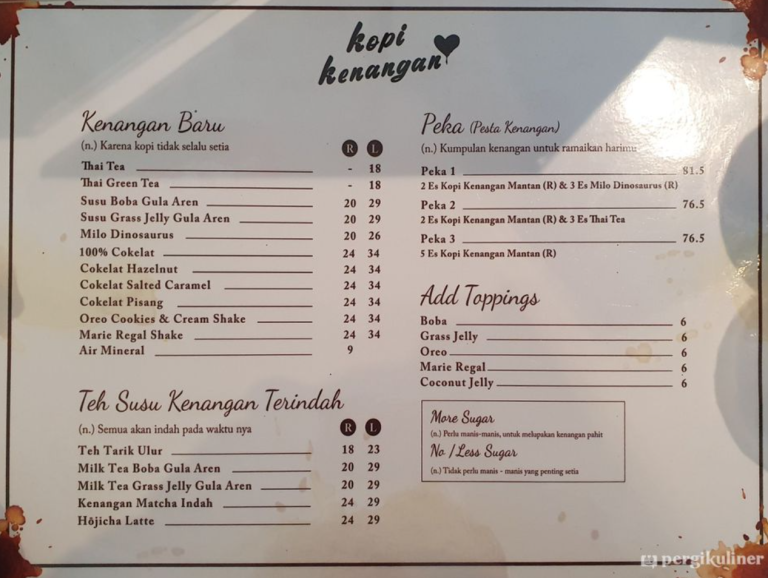 kopi
kenangan
Kenangan Baru
(n.) Karena kopi tidak selalu setia
R L
Thai Tea - 18
Thai Green Tea - 18
Susu Boba Gula Aren 20 29
Susu Grass Jelly Gula Aren 20 29
Milo Dinosaurus 20 26
100% Cokelat 24 34
Cokelat Hazelnut 24 34
Cokelat Salted Caramel 24 34
Cokelat Pisang 24 34
Oreo Cookies & Cream Shake 24 34
Marie Regal Shake 24 34
Air Mineral 9
Teh Susu Kenangan Terindah
(n.) Semua akan indah pada waktu nya
R L
Teh Tarik Ulur 18 23
Milk Tea Boba Gula Aren 20 29
Milk Tea Grass Jelly Gula Aren 20 29
Kenangan Matcha Indah 24 29
Hôjicha Latte 24 29
Peka (Pesta Kenangan)
(n.) Kumpulan kenangan untuk ramaikan harimu
Peka 1 81.5
2 Es Kopi Kenangan Mantan (R) & 3 Es Milo Dinosaurus (R)
Peka 2 76.5
2 Es Kopi Kenangan Mantan (R) & 3 Es Thai Tea
Peka 3 76.5
5 Es Kopi Kenangan Mantan (R)
Add Toppings
Boba 6
Grass Jelly 6
Oreo 6
Marie Regal 6
Coconut Jelly 6
More Sugar
(n.) Perlu manis-manis, untuk melupakan kenangan pahit
No / Less Sugar
(n.) Tidak perlu manis - manis yang penting setia
pergikuliner